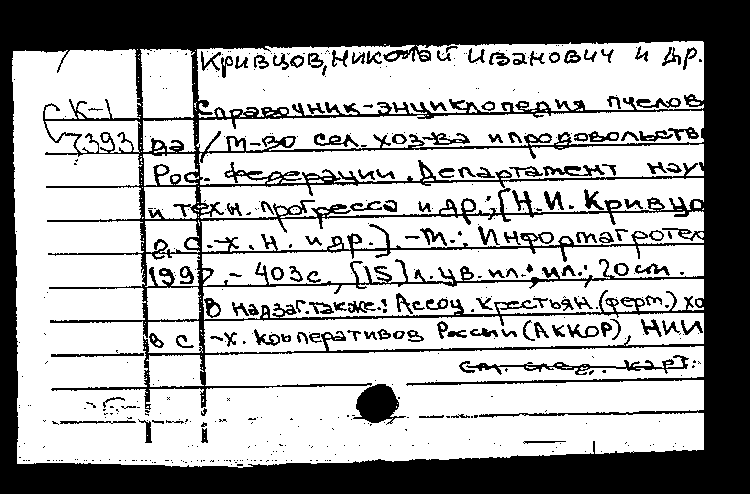 Кривцов, Николай Иванович и др.
К-1 Справочник-энциклопедия пчелов
7393 да / М-во сел. хоз-ва и продовольств
Рос. Федерации. Департамент нау
и техн. прогресса и др.; [Н.И. Кривцо
д.с.-х.н. и др.]. -М.: Информагротех
1997. - 403 с., [15] л. цв. ил.; ил.; 20 см.
В надзаг. также: Ассоц. крестьян. (ферм.) хо
в с -х. кооперативов России (АККОР), НИИ
см. след. карт.